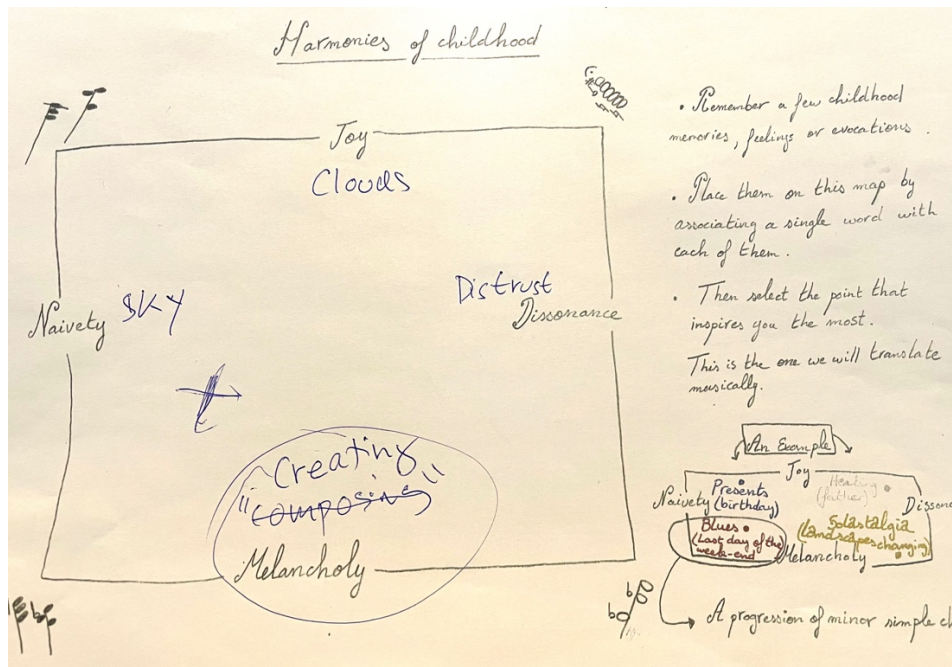 Harmonies of childhood
Joy
Clouds
Naivety
SKY
Distrust
Dissonance
Creating
"composing"
Melancholy
• Remember a few childhood
memories, feelings or evocations.
• Place them on this map by
associating a single word with
each of them.
• Then select the point that
inspires you the most.
This is the one we will translate
musically.
An Example
Joy
Naivety
Presents
(birthday)
Healing
(father)
Dissona
Blues
(Last day of the
week-end
Solastalgia
(Landscapes changing)
Melancholy
A progression of minor simple ch